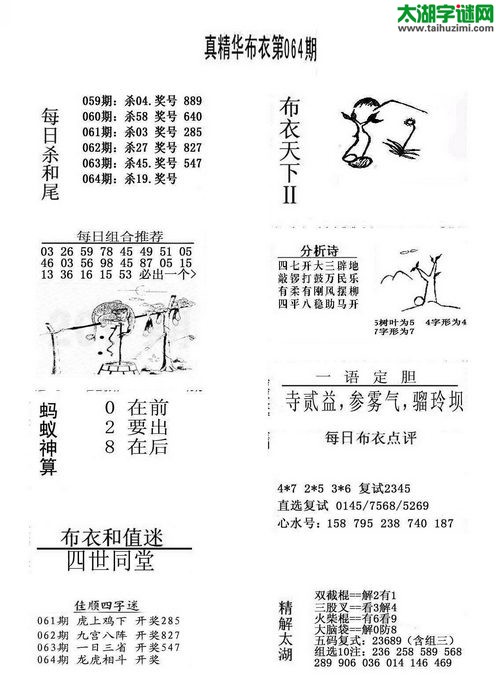 太湖字谜网
www.taihuzimi.com
真精华布衣第064期
每日杀和尾
059期: 杀04.奖号 889
060期: 杀58 奖号 640
061期: 杀03 奖号 285
062期: 杀27 奖号 827
063期: 杀45.奖号 547
064期: 杀19.奖号
布衣天下II
每日组合推荐
03 26 59 78 45 49 51 05
46 03 56 98 45 87 05 15
13 36 16 15 53 必出一个>
分析诗
四七开大三辟地
敲锣打鼓万民乐
有柔有刚风摆柳
四平八稳助马开
5树叶为5 4字形为4
7字形为7
蚂蚁神算
0 在前
2 要出
8 在后
一语定胆
寺贰益,参雾气,骝玲坝
每日布衣点评
4*7 2*5 3*6 复试2345
直选复试 0145/7568/5269
心水号: 158 795 238 740 187
布衣和值迷
四世同堂
佳顺四字迷
061期 虎上鸡下 开奖285
062期 九宫八阵 开奖827
063期 一日三省 开奖547
064期 龙虎相斗 开奖
精解太湖
双截棍==解2有1
三股叉==看3解4
火柴棍==有6看9
大脑袋==解0防8
五码复式: 23689 (含组三)
组选10注: 236 258 589 568
289 906 036 014 146 469